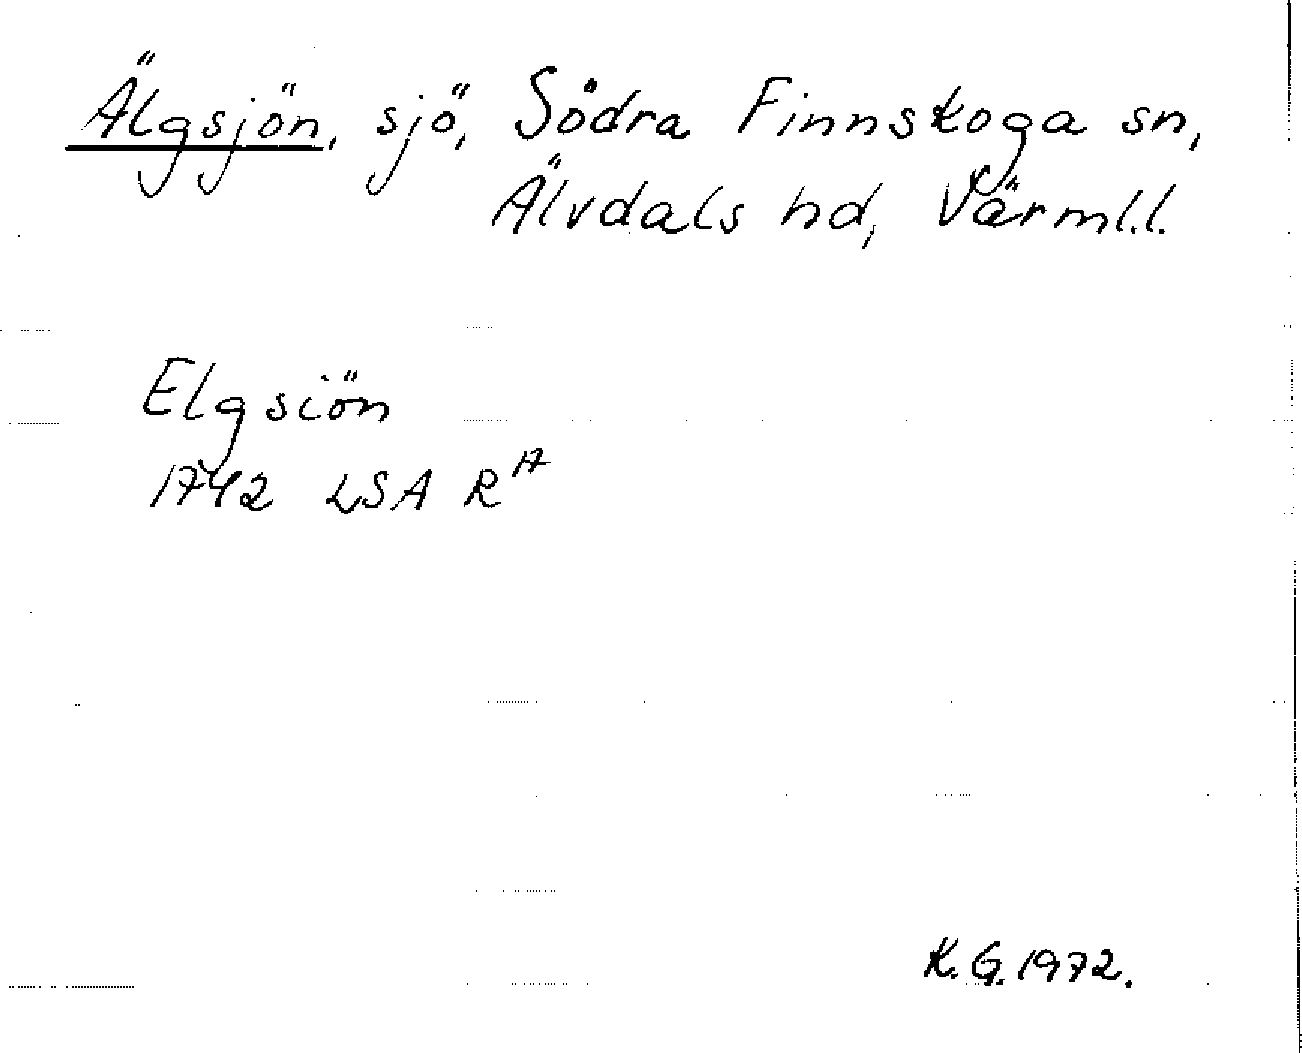 Älgsjön, sjö, Södra Finnskoga sn,
Älvdals hd, Värml.l.
Elgsiön
1742 LSA R 17
K.G. 1972.